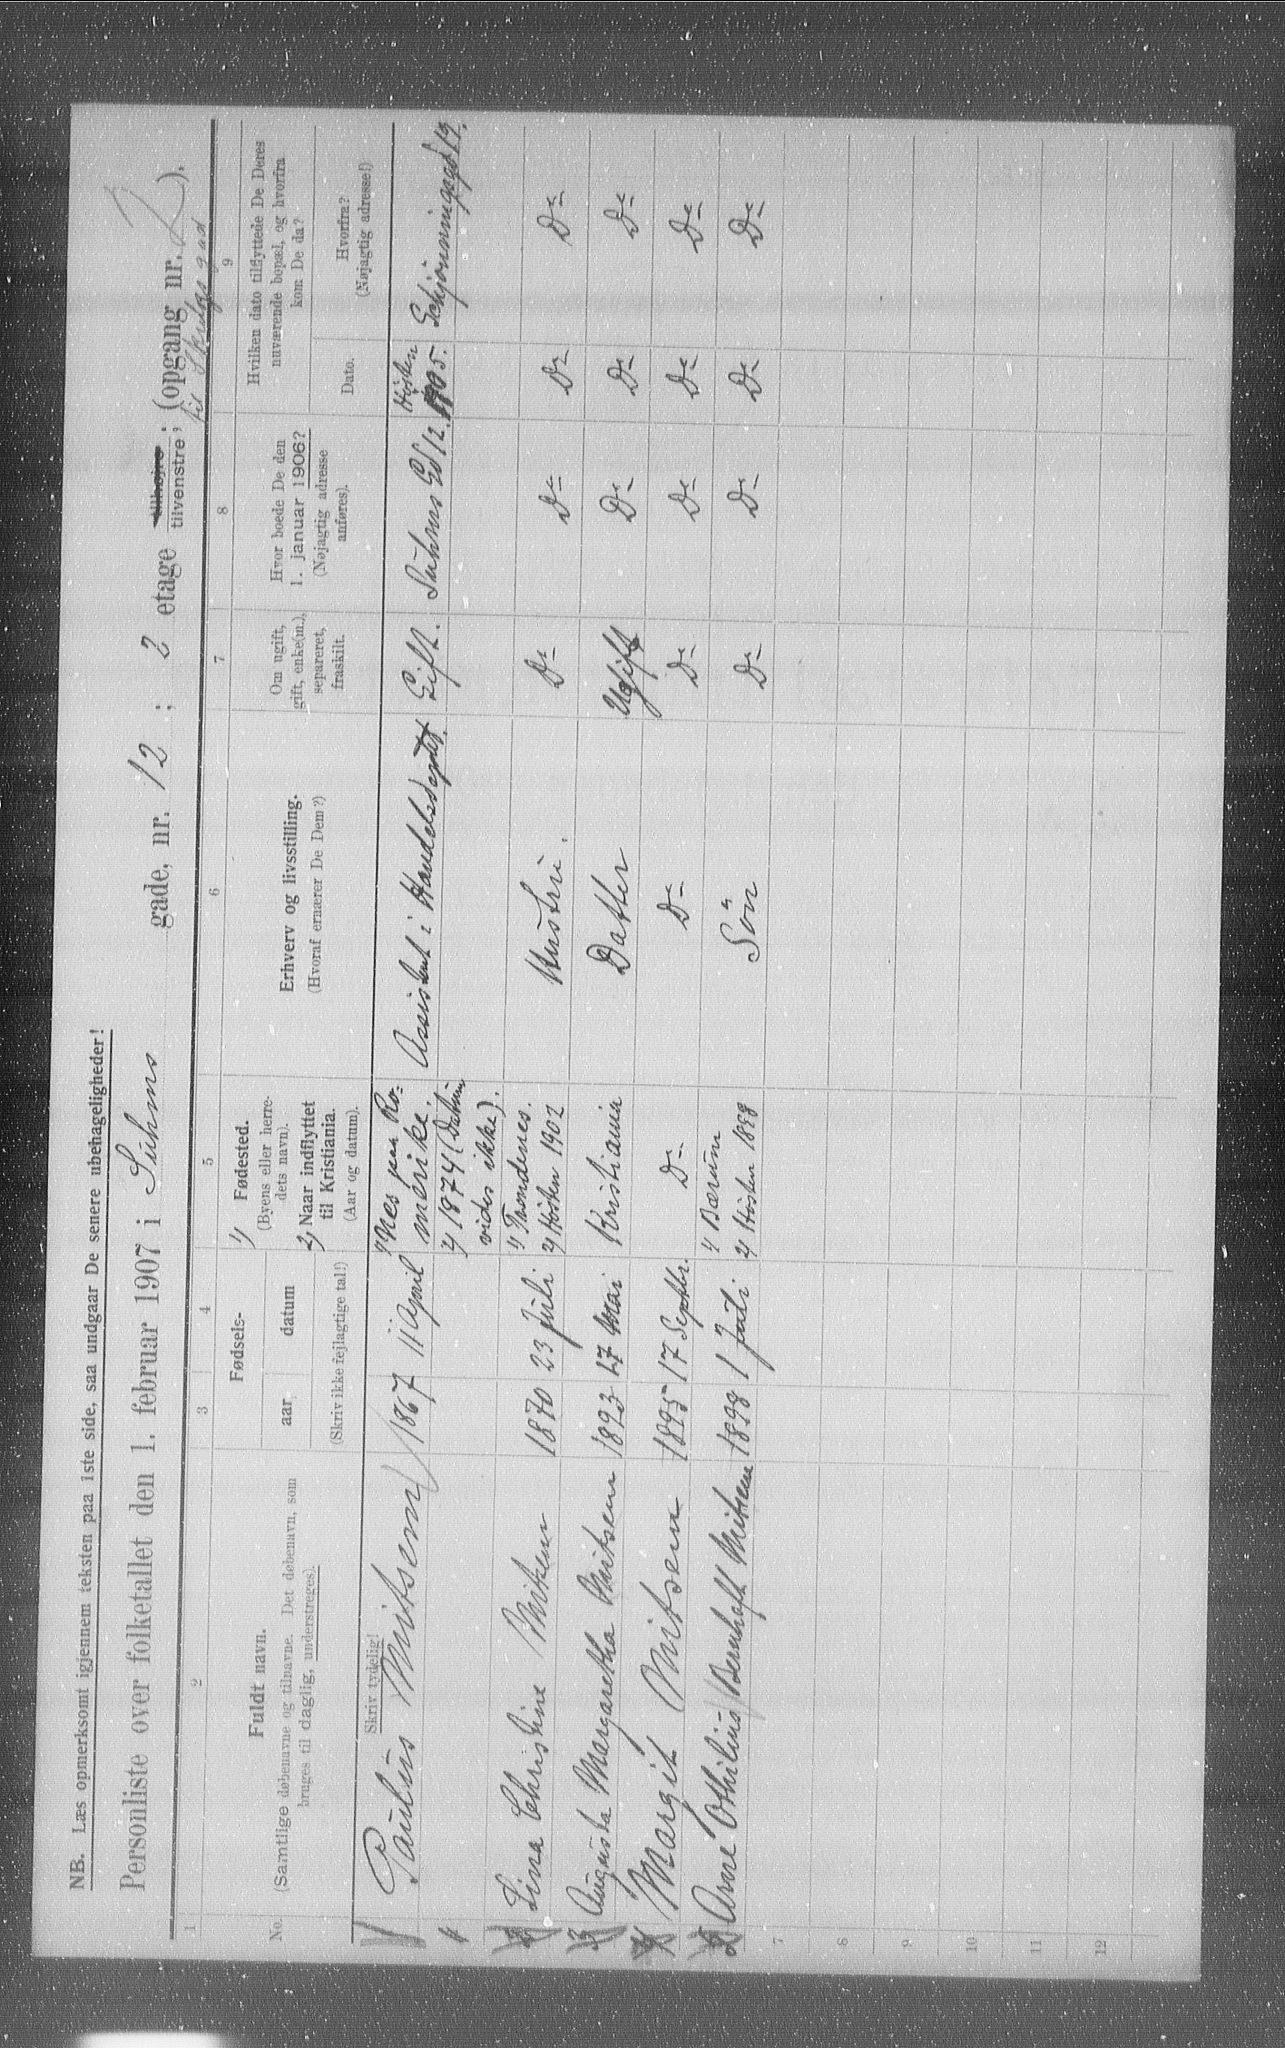 NB. Læs opmerksomt igjennem teksten paa 1ste side, saa undgaar De senere ubehageligheder!
Personliste over folketallet den 1. februar 1907 i Suhms gade, nr. 12 ; 2 etage tilhøjre ; tilvenstre, (opgang nr. ).
1 2 3 4 5 6 7 8 9
No.
Fuldt navn.
(Samtlige døbenavne og tilnavne. Det døbenavn, som
bruges til daglig, understreges).
Skriv tydelig!
Fødsels-
aar datum
(Skriv ikke fejlagtige tal!)
1) Fødested.
(Byens eller herre-
dets navn).
2) Naar indflyttet
til Kristiania.
(Aar og datum).
Erhverv og livsstilling.
(Hvoraf ernærer De Dem?)
Om ugift,
gift, enke(m.),
separeret,
fraskilt.
Hvor boede De den
1. januar 1906?
(Nøjagtig adresse
anføres).
Hvilken dato tilflyttede De Deres
nuværende bopæl, og hvorfra
kom De da?
Dato.
Hvorfra?
(Nøjagtig adresse!)
Paulus Mitsem 1867 11 April 1) Nes paa Ro= Assistent i Handelsdeptet. Gift. Suhms Gd 12. Høsten 1905. Schjønningsgd 19.
merike.
2) 1874 (Datum
vides ikke).
Lina Christine Mitsem 1870 23 juli 1) Trondenes. Hustru. Do Do Do Do
2) Høsten 1902
Augusta Margaretha Mitsem 1893 27 Mai Kristiania Datter Ugift Do Do Do
Margit Mitsem 1895 17 Septbr. Do Do Do Do Do Do
Arne Othilius Bernhoft Mitsem 1898 1 Juli 1) Bærum Søn Do Do Do Do
2) Høsten 1898
7
8
9
10
11
12